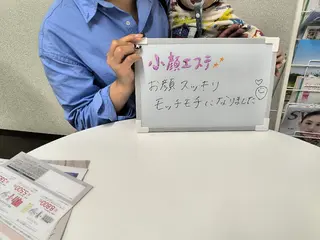 小顔エステ
お顔スッキリ
モッチモチになりました